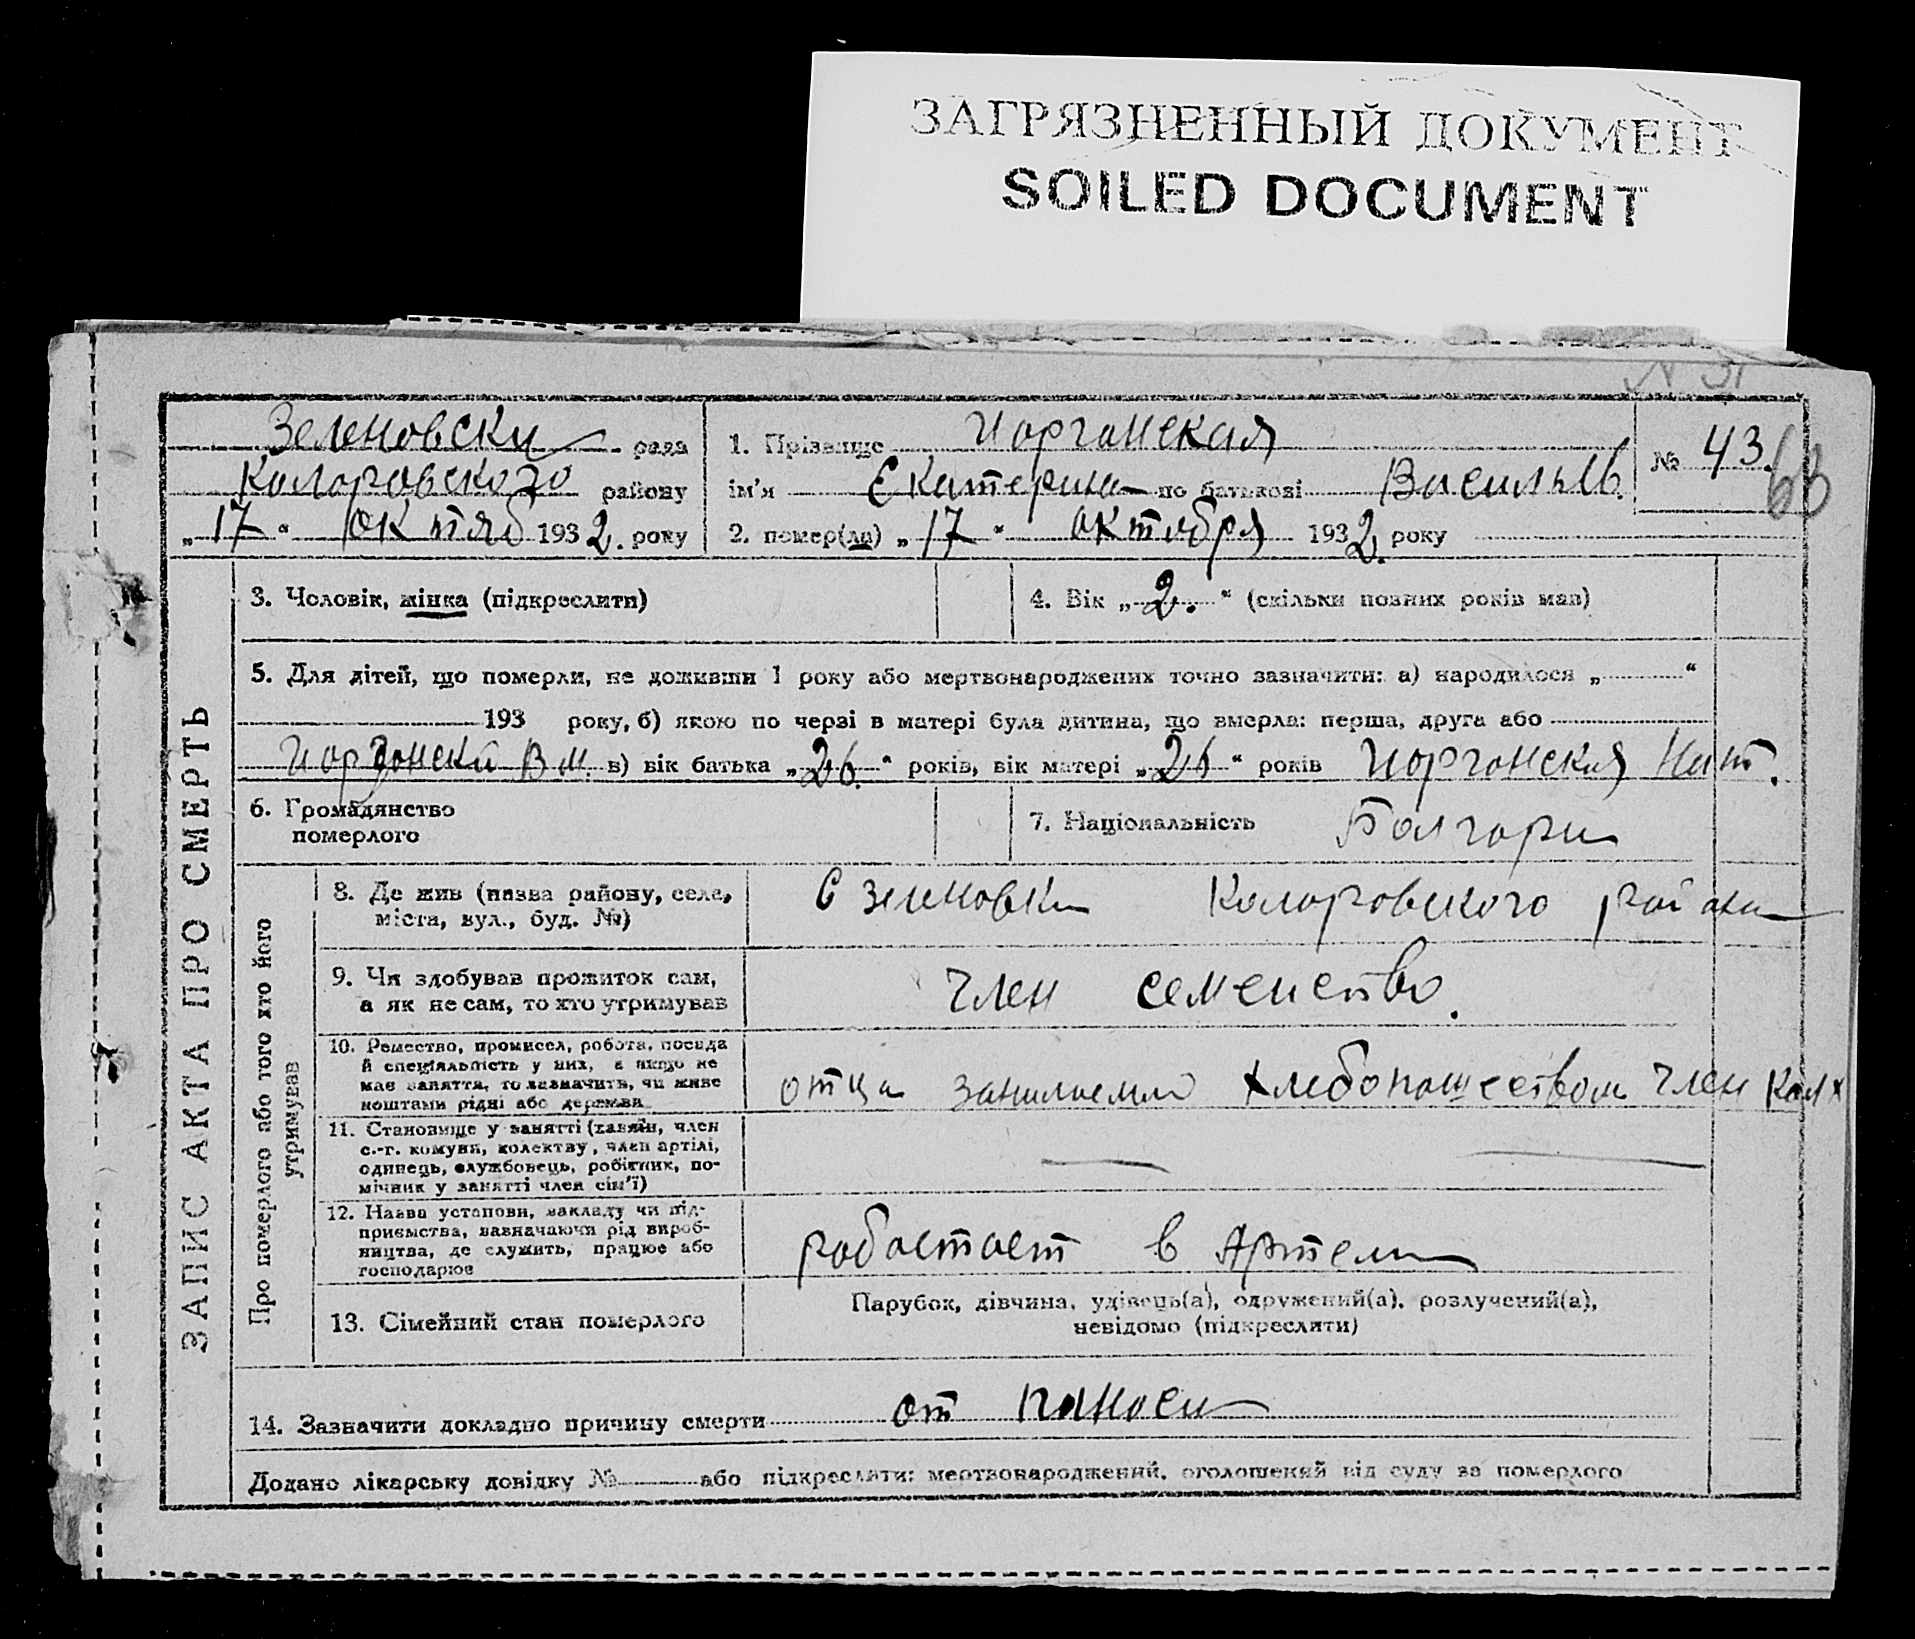 ЗАГРЯЗНЕННЫЙ ДОКУМЕНТ
SOILED DOCUMENT
N 31
Зеленовски рада
Коларовского району
„17“ октяб 1932. року
1. Прізвище Иорганская
ім'я Екатерина по батькові Василив.
2. помер(ла) „17“ октября 1932. року
№ 43.
63
ЗАПИС АКТА ПРО СМЕРТЬ
3. Чоловік, жінка (підкреслити)
4. Вік „2.“ (скільки повних років мав)
5. Для дітей, що померли, не доживши 1 року або мертвонароджених точно зазначити: а) народилося „ “
193 року, б) якою по черзі в матері була дитина, що вмерла: перша, друга або
Иоргонски В М. в) вік батька „26.“ років, вік матері „26“ років Иорганская Нат.
6. Громадянство
померлого
7. Національність Болгари
Про померлого або того хто його
утримував
8. Де жив (назва району, села,
міста, вул., буд. №)
С Зеленовки Коларовского района
9. Чи здобував прожиток сам,
а як не сам, то хто утримував
член семенство.
10. Ремество, промисел, робота, посада
й спеціяльність у них, а якщо не
має заняття, то зазначить, чи живе
коштами рідні або держави
отца хлебопашеством член Колх
11. Становище у занятті (хазяїн, член
с.-г. комуни, колектву, член артілі,
одинець, службовець, робітник, по-
мічник у занятті член сім'ї)
12. Назва установи, закладу чи під-
приємства, зазначаючи рід вироб-
ництва, де служить, працює або
господарює
робостает в Артели
13. Сімейний стан померлого
Парубок, дівчина, удівець(а), одружений(а), розлучений(а),
невідомо (підкреслити)
14. Зазначити докладно причину смерти от поноси
Додано лікарську довідку № або підкреслити: мертвонароджений, оголошений від суду за померлого